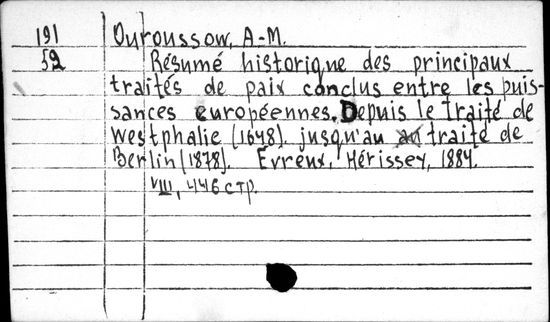 191 Ouroussow, A-M.
52 Résumé historique des principaux
traités de paix conclus entre les puis-
sances européennes. Depuis le traité de
Westphalie (1648). jusqu'au traité de
Berlin (1878). Evreux, Hérissey, 1884.
VIII, 446 стр.